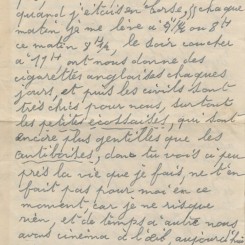 quand j'étais en Corse, chaque
matin je me lève à 9h½ ou 8h
ce matin 8h¾, le soir coucher
à 11h on nous donne des
cigarettes anglaises chaques
jours, et puis les civils sont
très chics pour nous, surtout
les petites écossaises, qui sont
encore plus gentilles que les
antiboises, donc tu vois à peu
près la vie que je fais, ne t'en
fait pas pour moi en ce
moment car je ne risque
rien, et de temps à autre nous
avons cinéma à l'œil, aujourd'hui